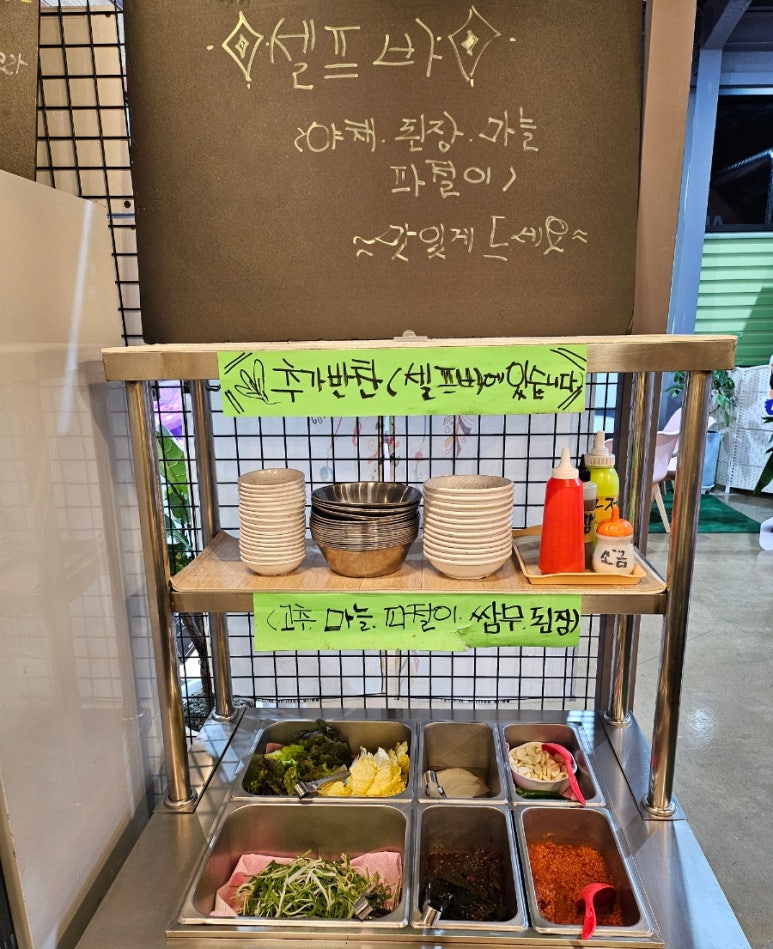 셀프바
(야채. 된장. 마늘
파절이)
~맛있게 드세요~
추가반찬 (셀프바)에 있습니다
(고추. 마늘. 파절이. 쌈무. 된장)
소금